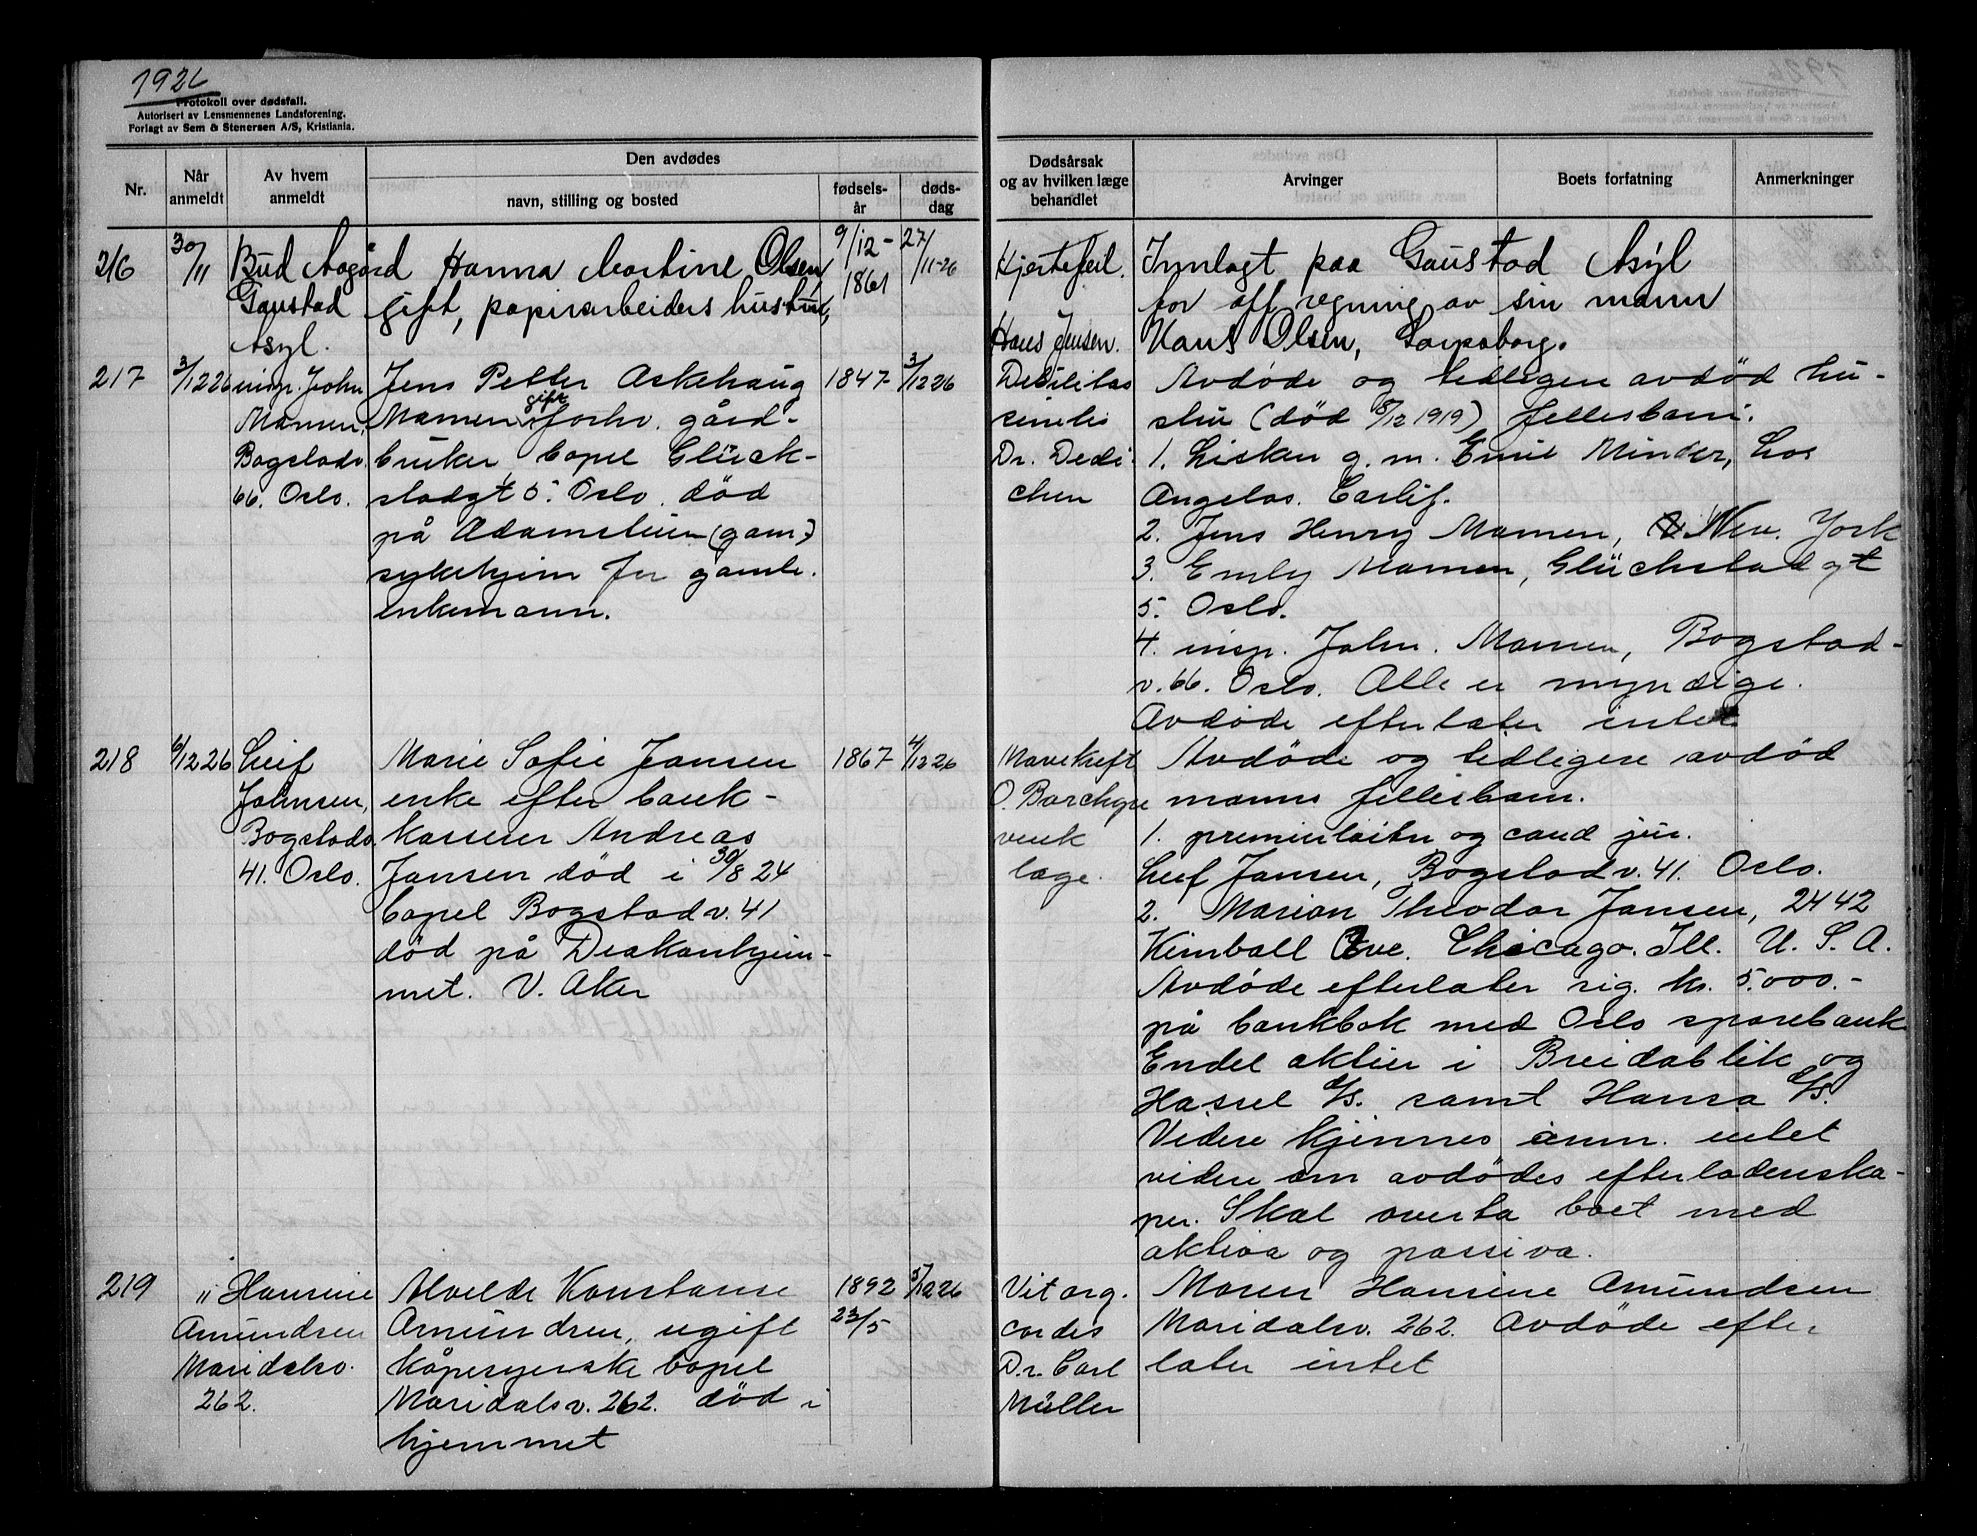 1926
Protokoll over dødsfall.
Autorisert av Lensmennenes Landsforening.
Forlagt av Sem & Stenersen A/S, Kristiania.
Nr.
Når anmeldt
Av hvem anmeldt
Den avdødes
navn, stilling og bosted
fødsels-år
døds-dag
Dødsårsak og av hvilken læge behandlet
Arvinger
Boets forfatning
Anmerkninger
216
30/11
Bud
Gaustad
Asyl.
Hanna Martine Olsen,
gift, papirarbeiders hustru,
9/12-
1861
27/11-26
Hjertefeil.
Hans Jensen.
Innlagt paa Gaustad Asyl
for off regning av sin mann
Hans Olsen, Sarpsborg.
217
3/12 26
insp. John
Mamen,
Bogstadv.
66. Oslo.
Jens Petter Askehaug
Mamen gift forhv. gård-
bruker, bopel Glück-
stadgt 5. Oslo. død
på Adamstuen (gam.)
sykehjem for gamle.
enkemann.
1847-
3/12 26
Debilitas
senilis
Dr. Dedi-
chen
Avdøde og tidligere avdød hu-
stru (død 8/12 1919) fellesbarn:
1. Lisken g. m. Emil Minder, Los
Angelos. Carlif.
2. Jens Henry Mamen, New. York
3. Emly Mamen, Glückstadgt
5. Oslo.
4. insp. John. Mamen, Bogstad-
v. 66. Oslo. Alle er myndige.
Avdøde efterlater intet
218
6/12 26
Leif
Johnsen,
Bogstadv.
41. Oslo.
Marie Sofie Jansen
enke efter bank-
kasserer Andreas
Jansen død i 30/8 24
bopel Bogstadv. 41
død på Diakonhjem-
met. V. Aker
1867-
4/12 26
Mavekreft
læge.
Avdøde og tidligere avdød
manns fellesbarn.
1. premierløitn og cand jur.
Leif Jansen, Bogstadv. 41. Oslo.
2. Marian Theodor Jansen, 2442
Kimball Ave. Chicago. Ill. U. S. A.
Avdøde efterlater sig. kr. 5.000.-
på bankbok med Oslo sparebank
Endel aktier i Breidablik og
Hassel A/S. samt Hansa A/S.
Videre kjennes anm. intet
videre om avdødes efterladenska-
per. Skal overta boet med
aktiva og passiva.
219
" Hansine
Amundsen
Maridalsv.
262.
Alvilde Konstanse
Amundsen, ugift
kåpesyerske bopel
Maridalsv. 262. død i
hjemmet
1892
23/5
5/12 26
Vit org.
cordis
Dr. Carl
Müller
Maren Hansine Amundsen
Maridalsv. 262. Avdøde efter
later intet